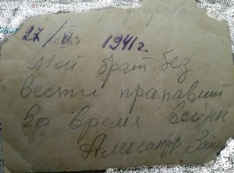 27/VI 1941г.
Мой брат без
вести прапавший
во время войны
Александр